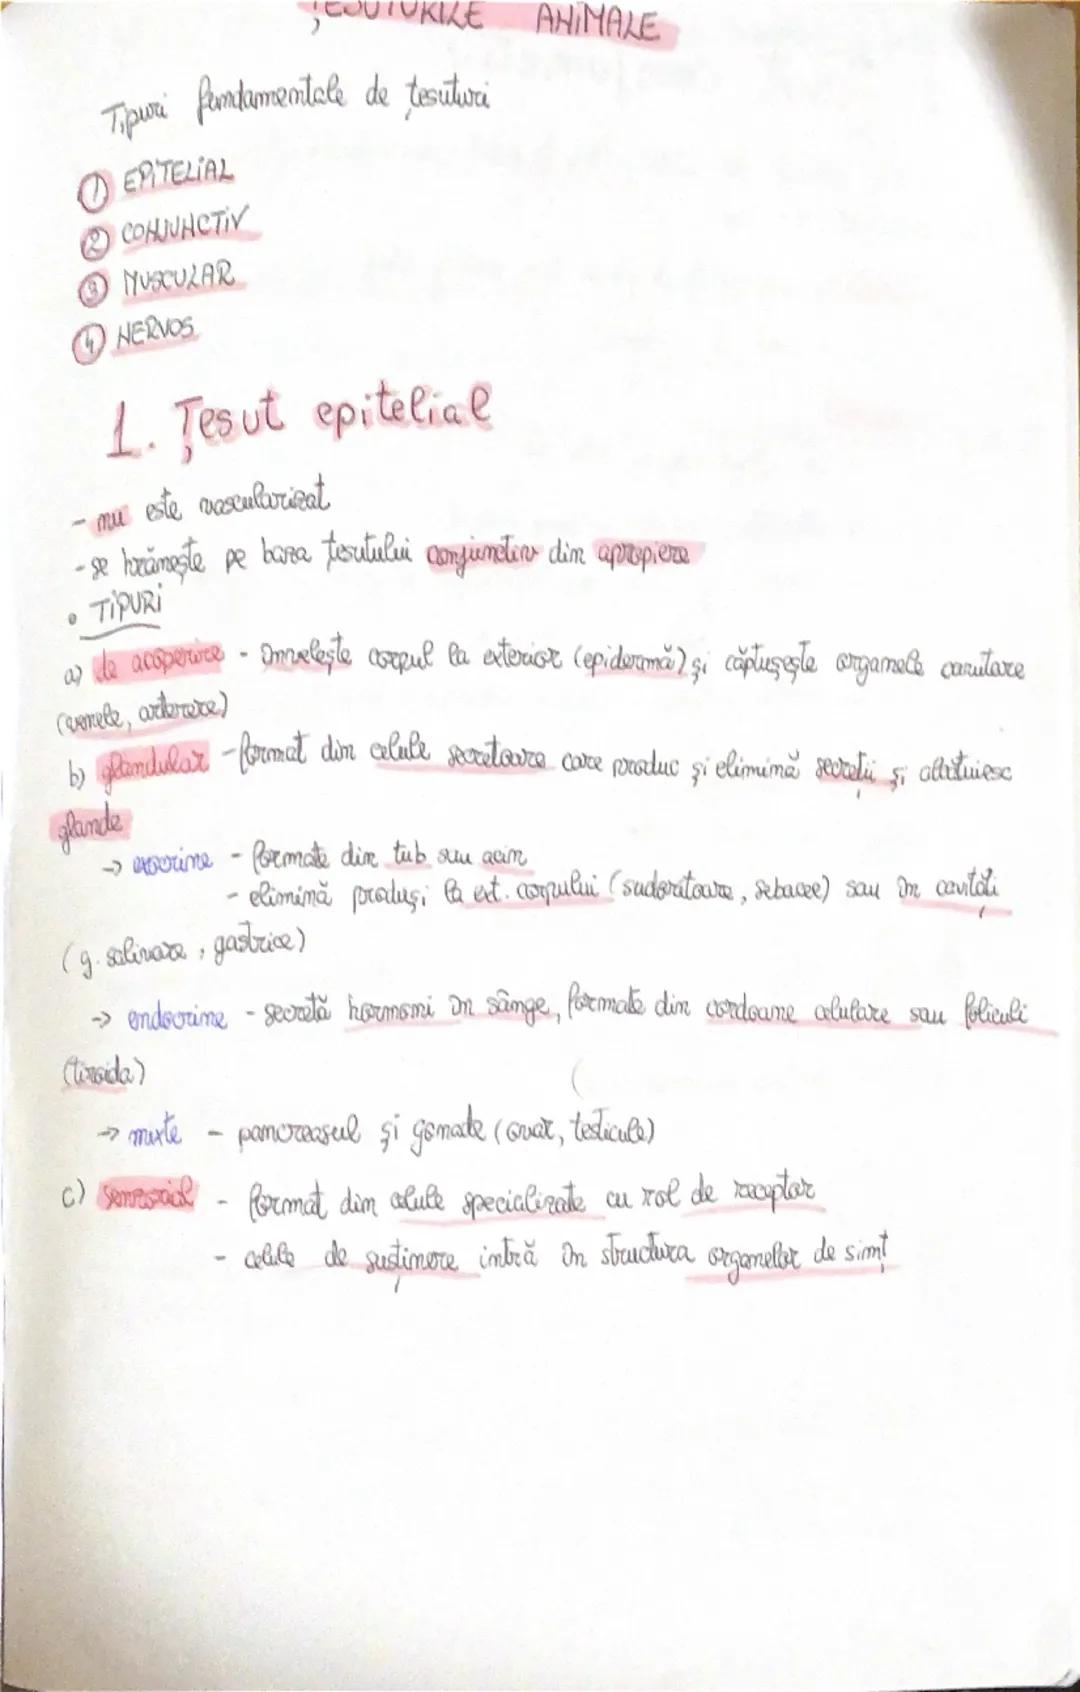 ȚESUTURILE ANIMALE
Tipuri fundamentale de țesuturi
1 EPITELIAL
2 CONJUNCTIV
3 MUSCULAR
4 NERVOS
1. Țesut epitelial
- nu este vascularizat
- se hrănește pe baza țesutului conjunctiv din apropiere
• TIPURI
a) de acoperire - învelește corpul la exterior (epidermă) și căptușește organele cavitare
(venele, arterere)
b) glandular - format din celule secretoare care produc și elimină secreții și alcătuiesc
glande
→ exocrine - formate din tub sau acin
- elimină produși la ext. corpului (sudoritoare, sebacee) sau în cavități
(g. salivare, gastrice)
→ endocrine - secretă hormoni în sânge, formate din cordoane celulare sau foliculi
(tiroida)
→ mixte - pancreasul și gonade (ovar, testicule)
c) senzorial - format din celule specializate cu rol de receptor
- celule de susținere intră în structura organelor de simț